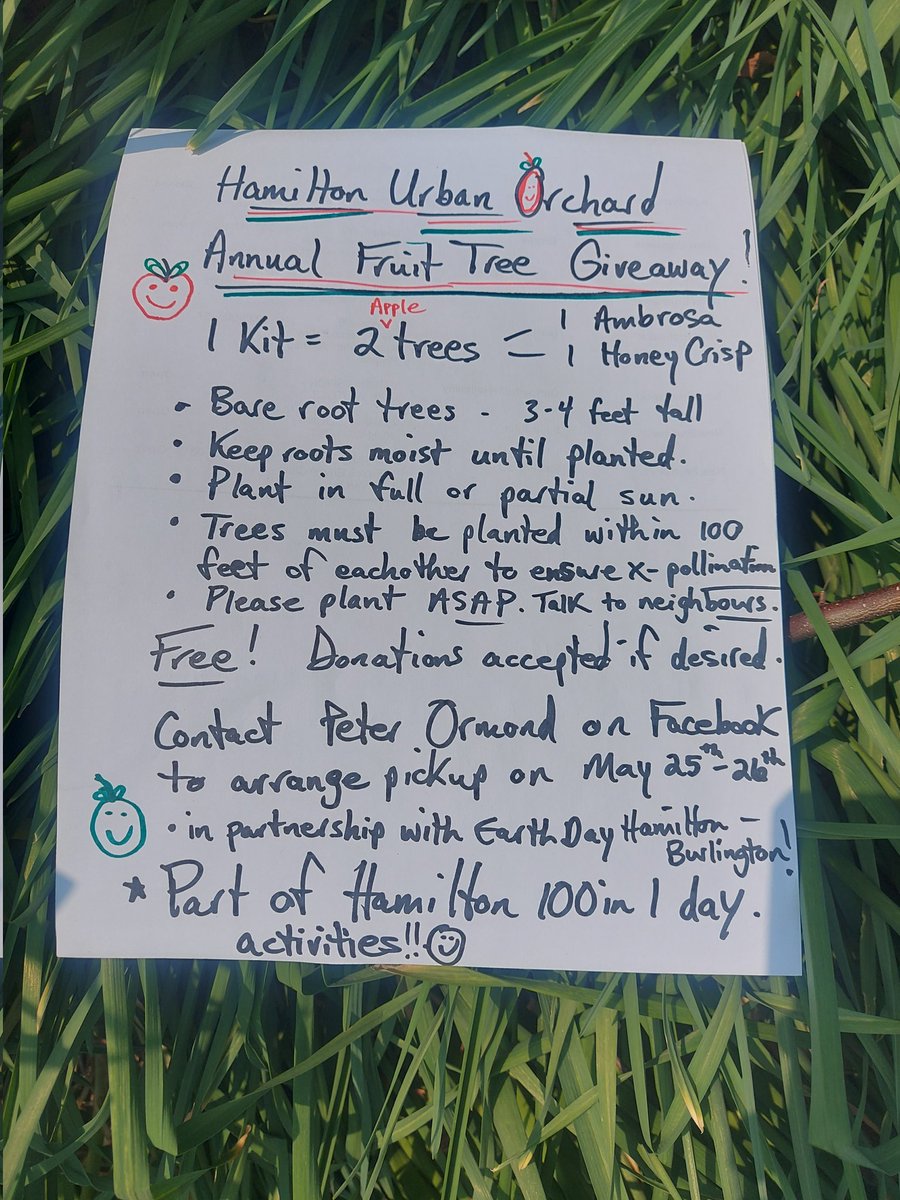 Hamilton Urban Orchard
Annual Fruit Tree Giveaway!
1 Kit = 2 Apple trees = 1 Ambrosa
1 Honey Crisp
• Bare root trees - 3-4 feet tall
• Keep roots moist until planted.
• Plant in full or partial sun.
• Trees must be planted within 100
feet of eachother to ensure x-pollination
• Please plant ASAP. Talk to neighbours.
Free! Donations accepted if desired.
Contact Peter Ormond on Facebook
to arrange pickup on May 25th-26th
• in partnership with Earth Day Hamilton-
Burlington!
* Part of Hamilton 100 in 1 day.
activities!! ☺